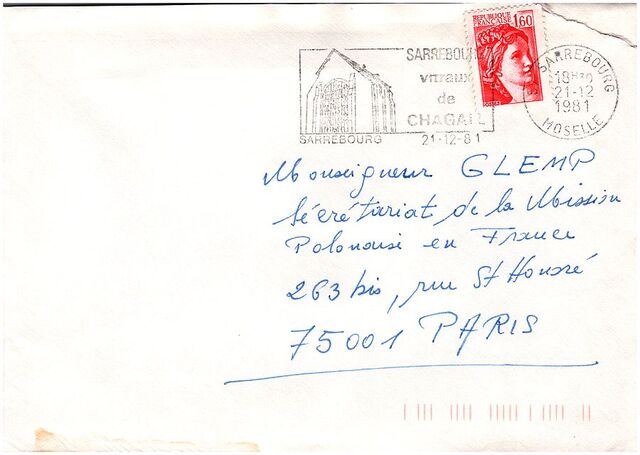 REPUBLIQUE
FRANÇAISE
1,60
SARREBOURG
vitraux
de
CHAGALL
SARREBOURG
21-12-81
SARREBOURG
18H30
21-12
1981
MOSELLE
Monseigneur GLEMP
Sécrétariat de la Mission
Polonaise en France
263 bis, rue St Honoré
75001 PARIS